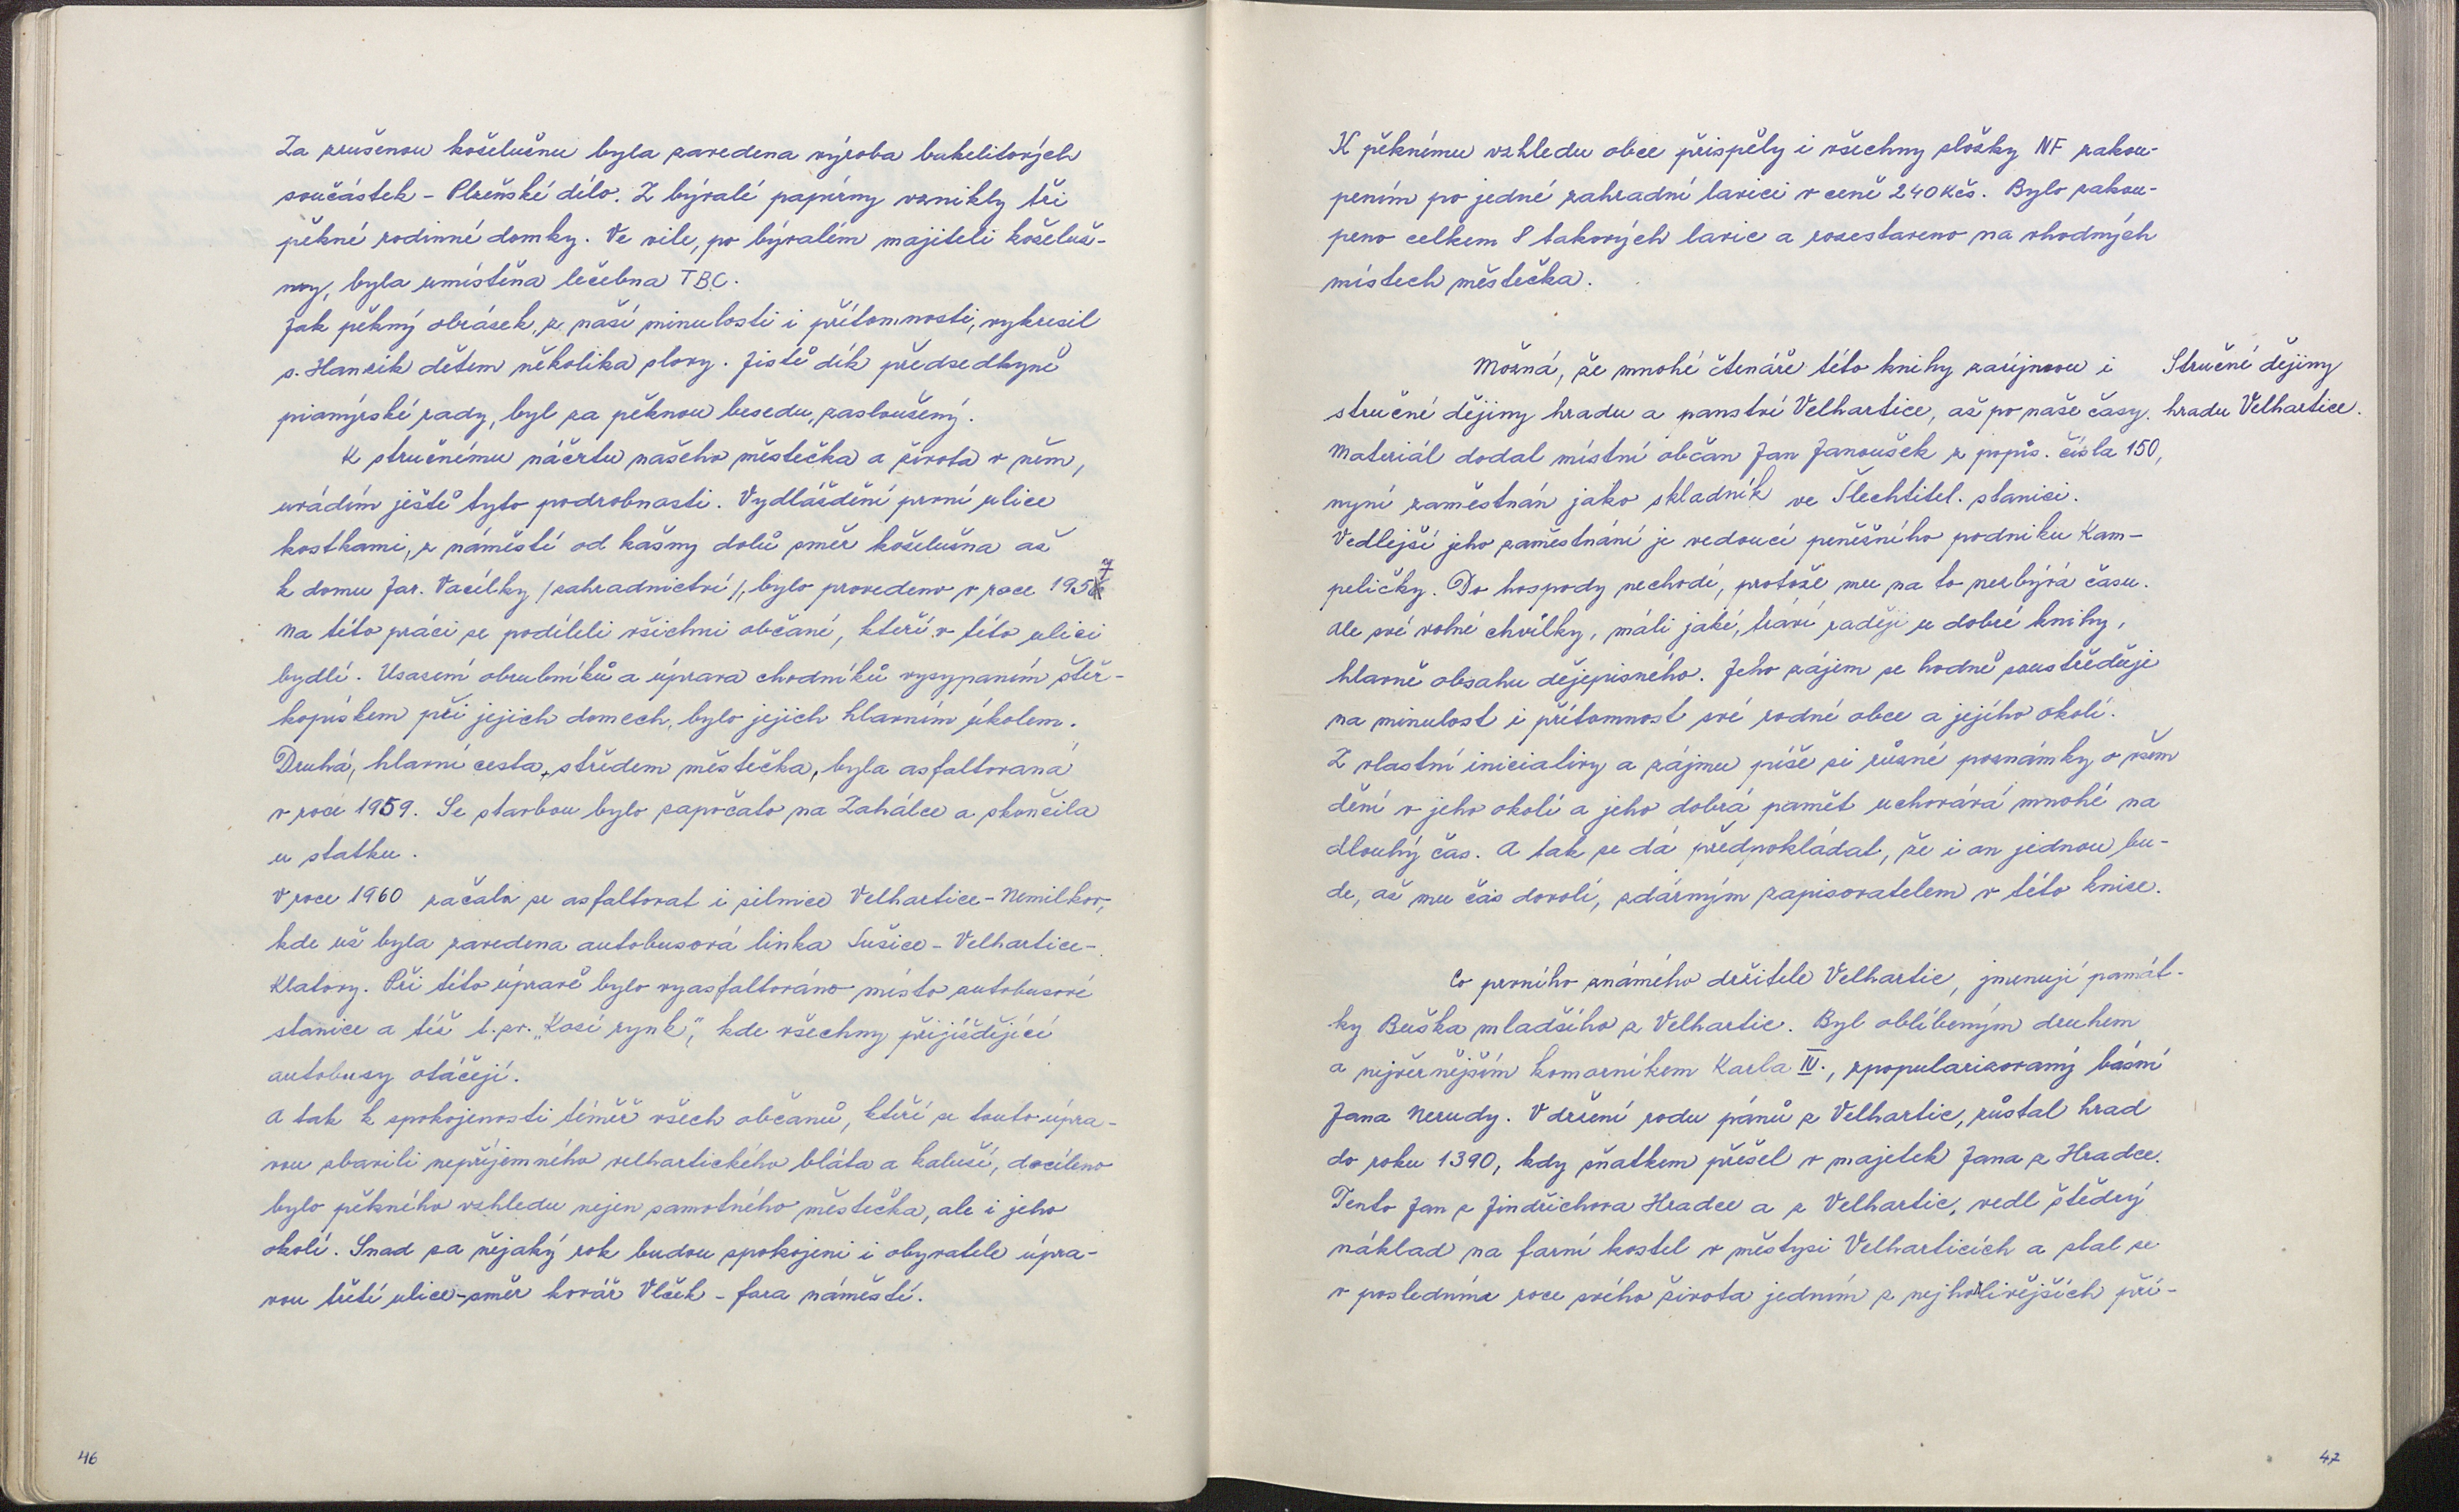 Za zrušenou koželužnu byla zavedena výroba bakelitových
součástek - Plzeňské dílo. Z bývalé papírny vznikly tři
pěkné rodinné domky. Ve vile, po bývalém majiteli koželuž-
ny, byla umístěna léčebna TBC.
Jak pěkný obrázek, z naší minulosti i přítomnosti, vykreslil
s. Hanzík dětem několika slovy. Jistě dík předsedkyně
pionýrské rady, byl za pěknou besedu, zasloužený.
K stručnému náčrtu našeho městečka a života v něm,
uvádím ještě tyto podrobnosti. Vydláždění první ulice
kostkami, z náměstí od kašny dolů směr koželužna až
k domu Jar. Vacílky /zahradnictví/, bylo provedeno v roce 1957
Na této práci se podíleli všichni občané, kteří v této ulici
bydlí. Usazení obrubníků a úprava chodníků vysypaním štěr-
kopískem při jejich domech, bylo jejich hlavním úkolem.
Druhá, hlavní cesta, středem městečka, byla asfaltovaná
v roce 1959. Se stavbou bylo započato na Zahálce a skončila
u statku.
V roce 1960 začala se asfaltovat i silnice Velhartice - Nemilkov,
kde už byla zavedena autobusová linka Sušice - Velhartice -
Klatovy. Při této úpravě bylo vyasfaltováno místo autobusové
stanice a též t. zv. "Kozí rynk", kde všechny přijíždějící
autobusy otáčejí.
A tak k spokojenosti téměř všech občanů, kteří se touto úpra-
vou zbavili nepříjemného velhartického bláta a kaluží, docíleno
bylo pěkného vzhledu nejen samotného městečka, ale i jeho
okolí. Snad za nějaký rok budou spokojeni i obyvatele úpra-
vou třetí ulice - směr kovář Vlček - fara náměstí.
46
K pěknému vzhledu obce přispěly i všechny složky NF zakou-
pením po jedné zahradní lavici v ceně 240 Kčs. Bylo zakou-
peno celkem 8 takových lavic a rozestaveno na vhodných
místech městečka.
Možná, že mnohé čtenáře této knihy zaujmou i
stručné dějiny hradu a panství Velhartice, až po naše časy.
Stručné dějiny
hradu Velhartice.
Materiál dodal místní občan Jan Janoušek z popis. čísla 150,
nyní zaměstnán jako skladník ve Šlechtitel. stanici.
Vedlejší jeho zaměstnání je vedoucí peněžního podniku Kam-
peličky. Do hospody nechodí, protože mu na to nezbývá času.
Ale své volné chvilky, máli jaké, tráví raději u dobré knihy,
hlavně obsahu dějepisného. Jeho zájem se hodně soustřeďuje
na minulost i přítomnost své rodné obce a jejího okolí.
Z vlastní iniciativy a zájmu píše si různé poznámky o všem
dění v jeho okolí a jeho dobrá paměť uchovává mnohé na
dlouhý čas. A tak se dá předpokládat, že i on jednou bu-
de, až mu čas dovolí, zdárným zapisovatelem v této knize.
Co prvního známého držitele Velhartic, jmenují památ-
ky Buška mladšího z Velhartic. Byl oblíbeným druhem
a nejvěrnějším komorníkem Karla IV., zpopularizovaný básní
Jana Nerudy. V držení rodu pánů z Velhartic, zůstal hrad
do roku 1390, kdy sňatkem přešel v majetek Jana z Hradce.
Tento Jan z Jindřichova Hradce a z Velhartic, vedl štědrý
náklad na farní kostel v městysi Velharticích a stal se
v posledním roce svého života jedním z nejhorlivějších pří-
47